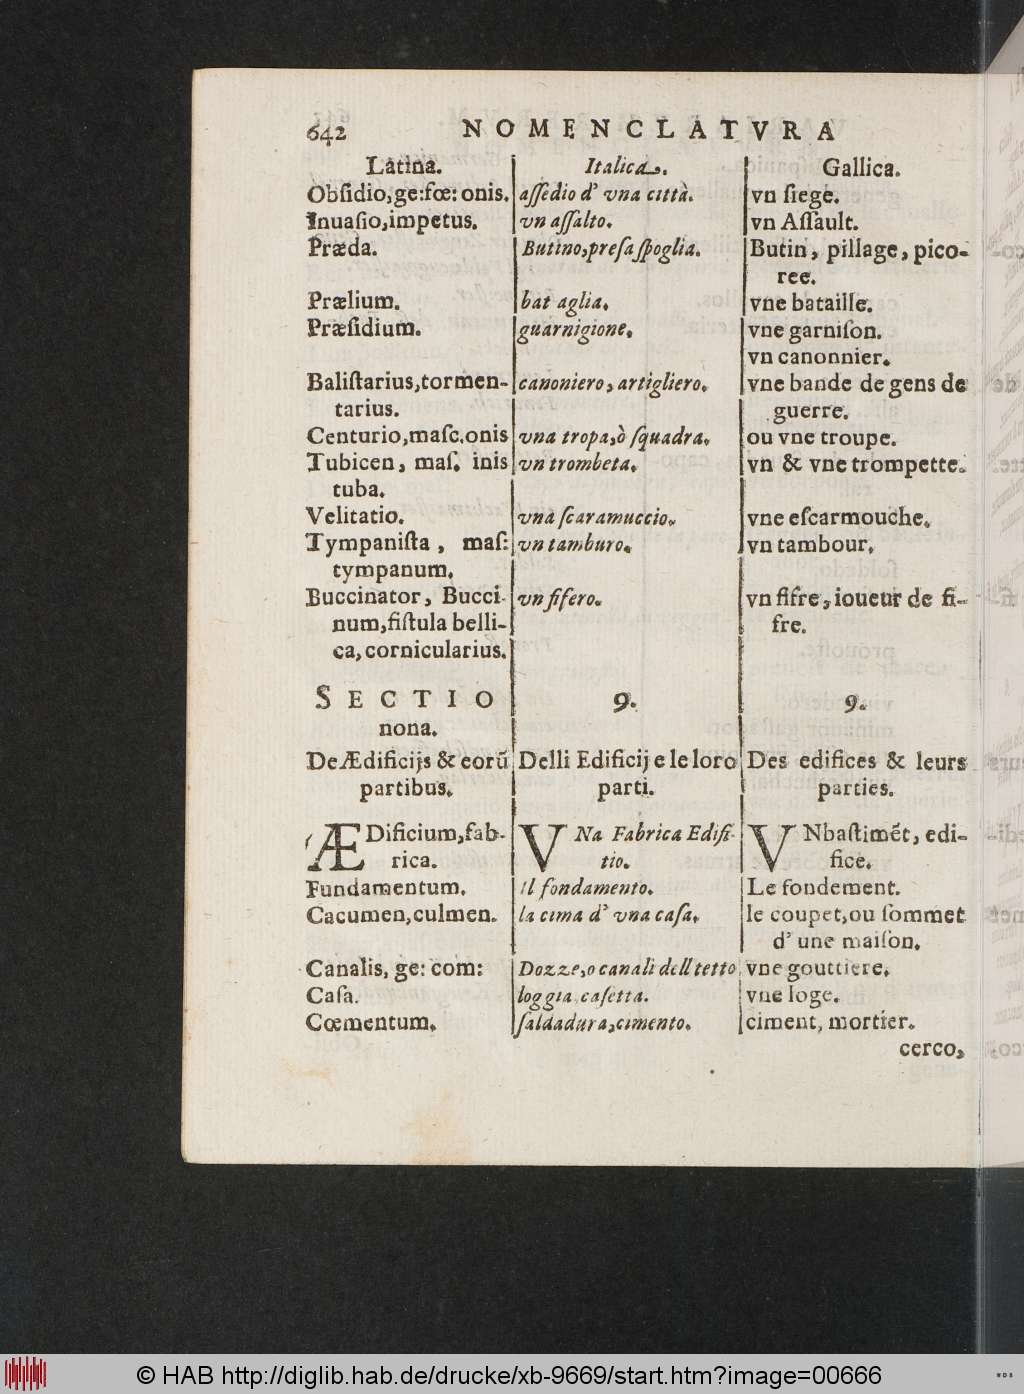 642 NOMENCLATVRA
Latina. Italica. Gallica.
Obſidio,ge:fœ: onis. aſſedio d' vna città. vn ſiege.
Inuaſio,impetus. vn aſſalto. vn Aſſault.
Præda. Butino,preſa ſpoglia. Butin, pillage, pico-
ree.
Prælium. bat aglia. vne bataille.
Præſidium. guarnigione. vne garniſon.
vn canonnier.
Baliſtarius,tormen- canoniero, artigliero. vne bande de gens de
tarius. guerre.
Centurio,maſc.onis vna tropa,ò ſquadra. ou vne troupe.
Tubicen, maſ. inis vn trombeta. vn & vne trompette.
tuba.
Velitatio. vna ſcaramuccio. vne eſcarmouche.
Tympaniſta, maſ: vn tamburo. vn tambour.
tympanum.
Buccinator, Bucci- vn fifero. vn fifre, ioueur de fi-
num,fiſtula belli- fre.
ca,cornicularius.
SECTIO 9. 9.
nona.
De Ædificijs & eorũ Delli Edificij e le loro Des edifices & leurs
partibus. parti. parties.
ÆDificium,fab- VNa Fabrica Edifi- VNbaſtimẽt, edi-
rica. tio. fice.
Fundamentum. Il fondamento. Le fondement.
Cacumen,culmen. la cima d' vna caſa. le coupet,ou ſommet
d' une maiſon.
Canalis, ge: com: Dozze,o canali dell tetto vne gouttiere.
Caſa. loggia caſetta. vne loge.
Cœmentum. ſaldadura,cimento. ciment, mortier.
cerco,
© HAB http://diglib.hab.de/drucke/xb-9669/start.htm?image=00666